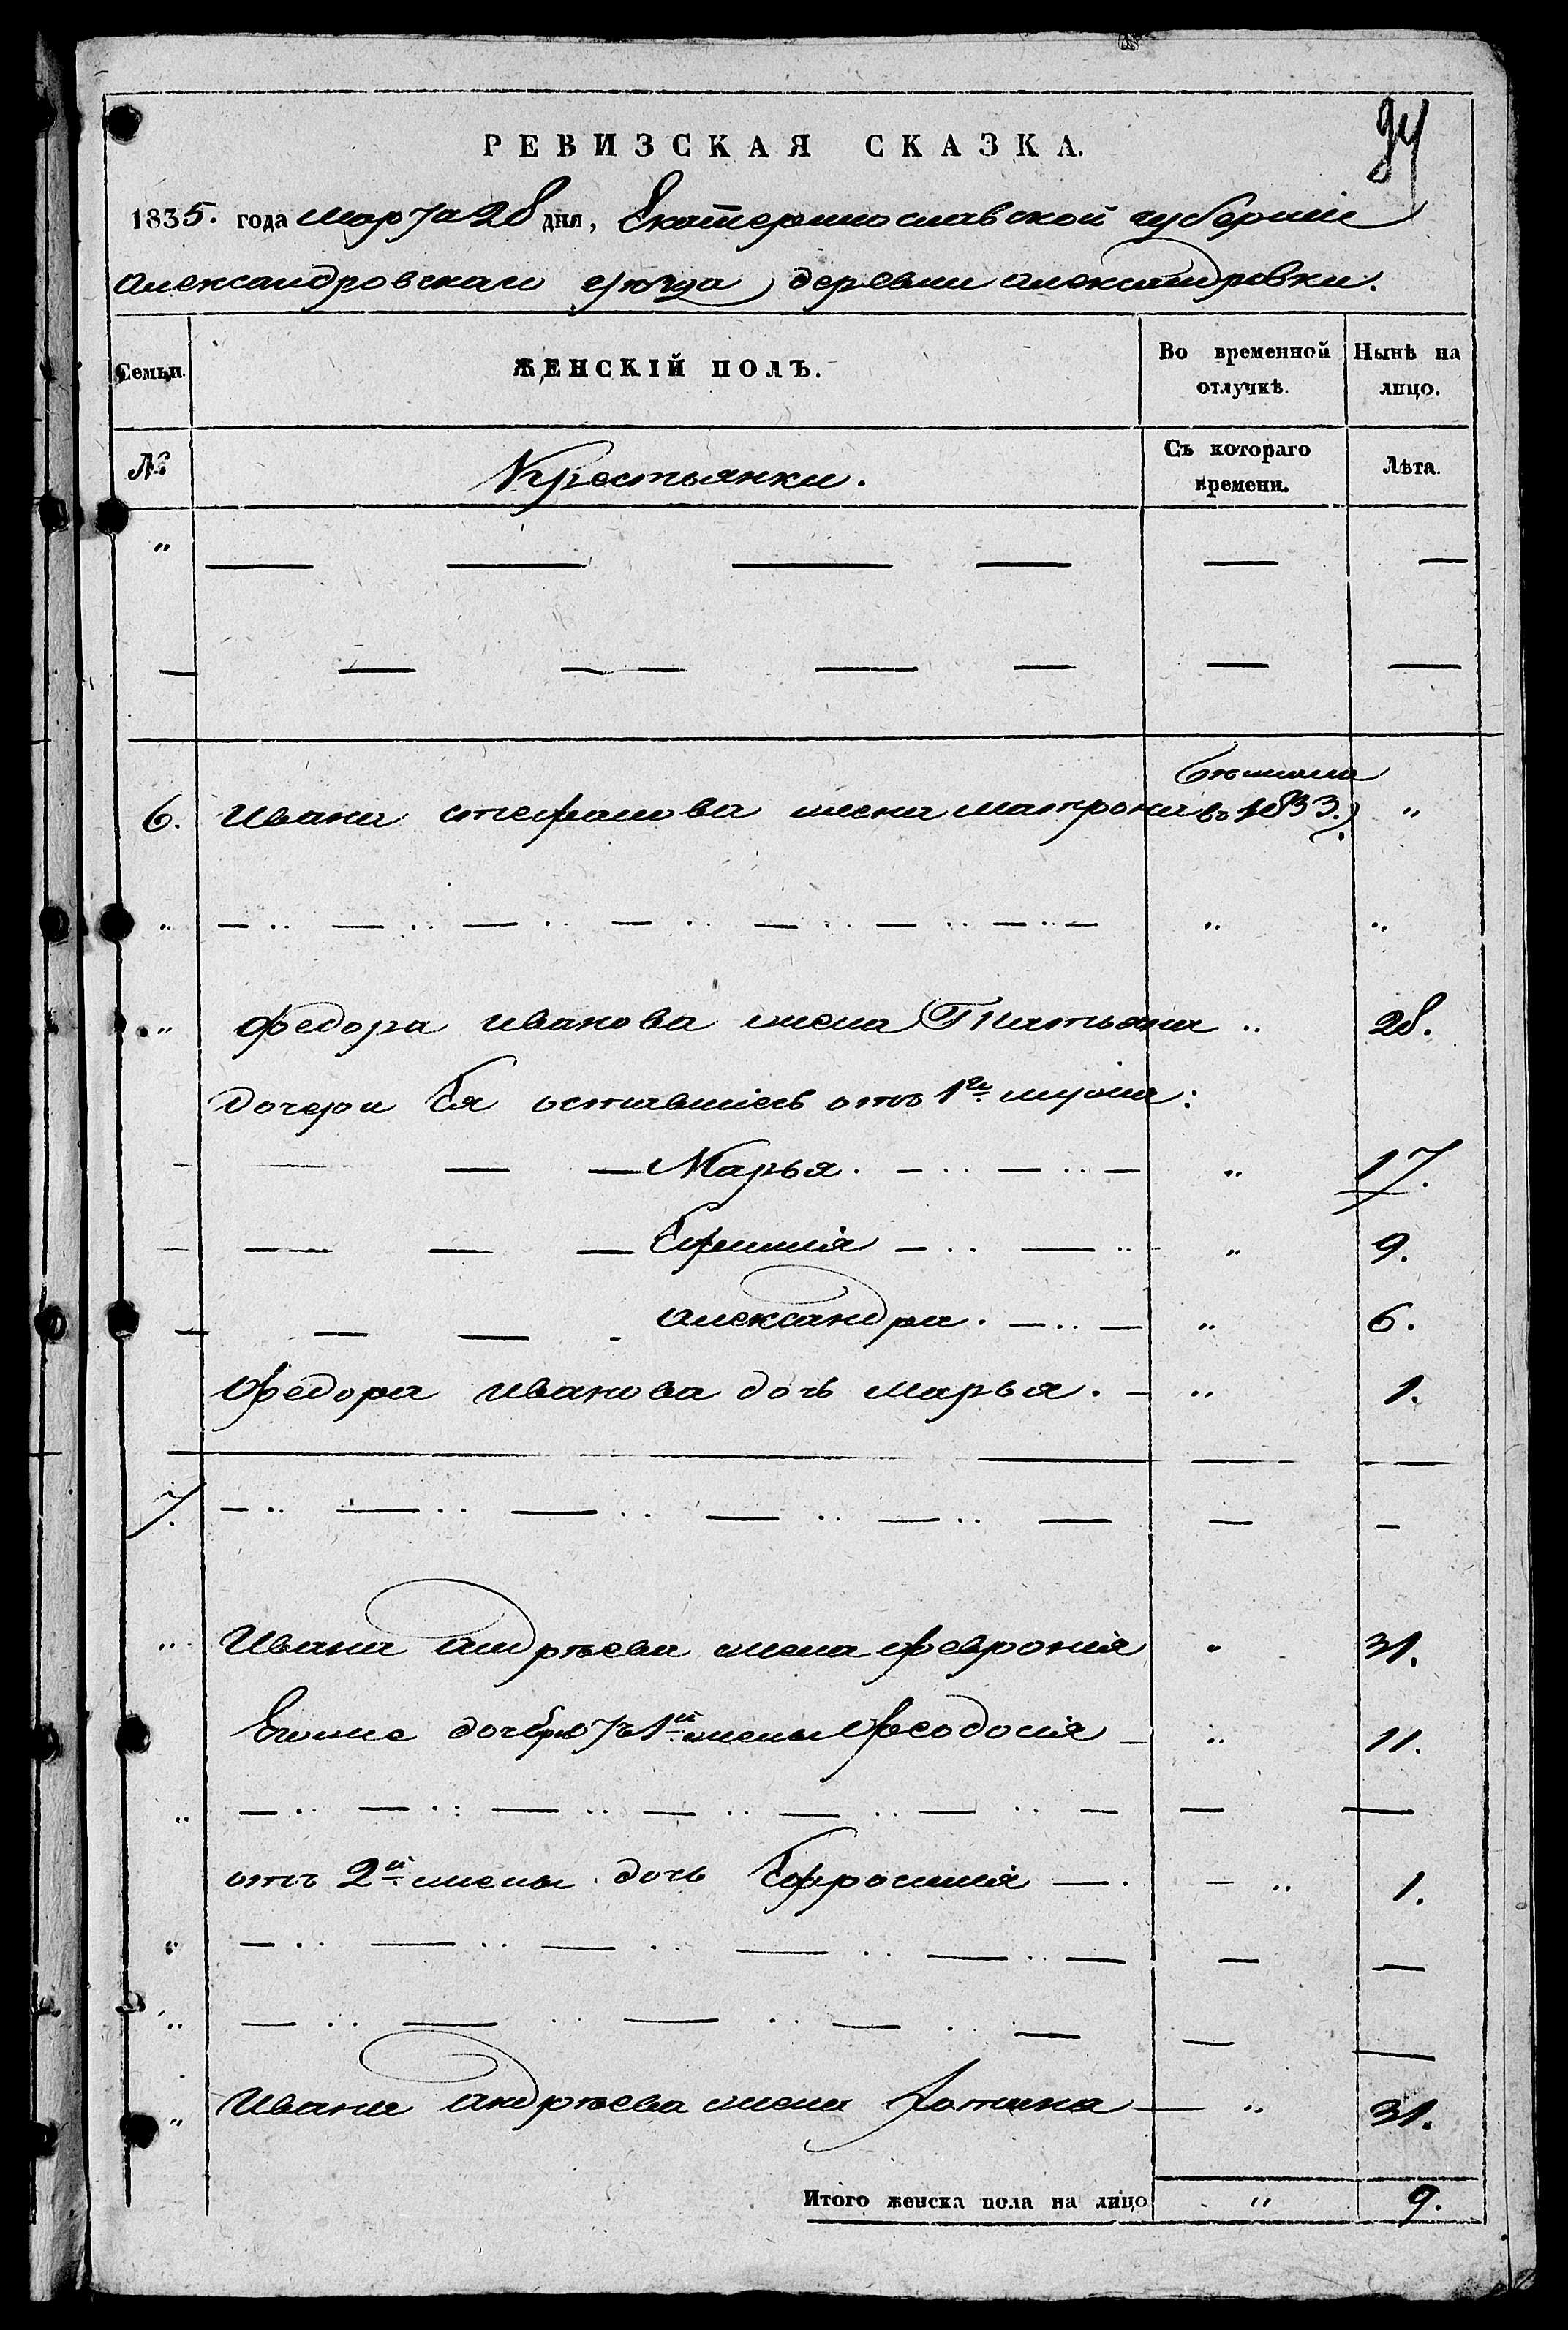 94
РЕВИЗСКАЯ СКАЗКА.
1835. года Марта 28 дня, Екатеринославской губерніи
Александровскаго уѣзда, деревни Александровки.
Семьи. ЖЕНСКІЙ ПОЛЪ. Во временной отлучкѣ. Нынѣ на лицо.
№ Крестьянки. Съ котораго времени. Лѣта.
"
6. Ивана Стефанова жена Матрона бежала въ 1833. "
" " "
" Федора Иванова жена Татьяна " 28.
дочери Ея оставшіесь отъ 1го мужа:
Марья. " 17.
Ефимия " 9.
Александра. " 6.
Федора Иванова дочь Марья. " 1.
7.
" Ивана Андрѣева жена Феврония " 31.
Егоже дочь отъ 1й жены Феодосия " 11.
"
отъ 2й жены дочь Ефросиния " 1.
"
"
" Ивана Андрѣева жена " 31.
Итого женска пола на лицо " 9.